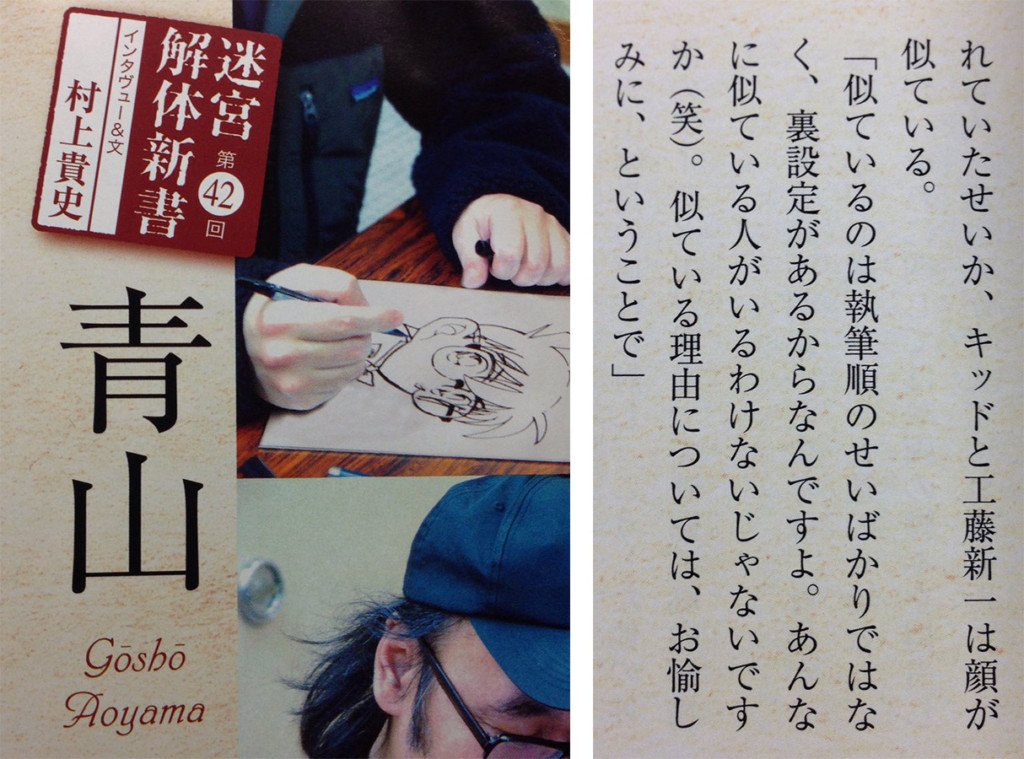 迷宮
解体新書
第42回
インタヴュー&文
村上貴史
青山
Gōshō
Aoyama
れていたせいか、キッドと工藤新一は顔が
似ている。
「似ているのは執筆順のせいばかりではな
く、裏設定があるからなんですよ。あんな
に似ている人がいるわけないじゃないです
か（笑）。似ている理由については、お愉し
みに、ということで」